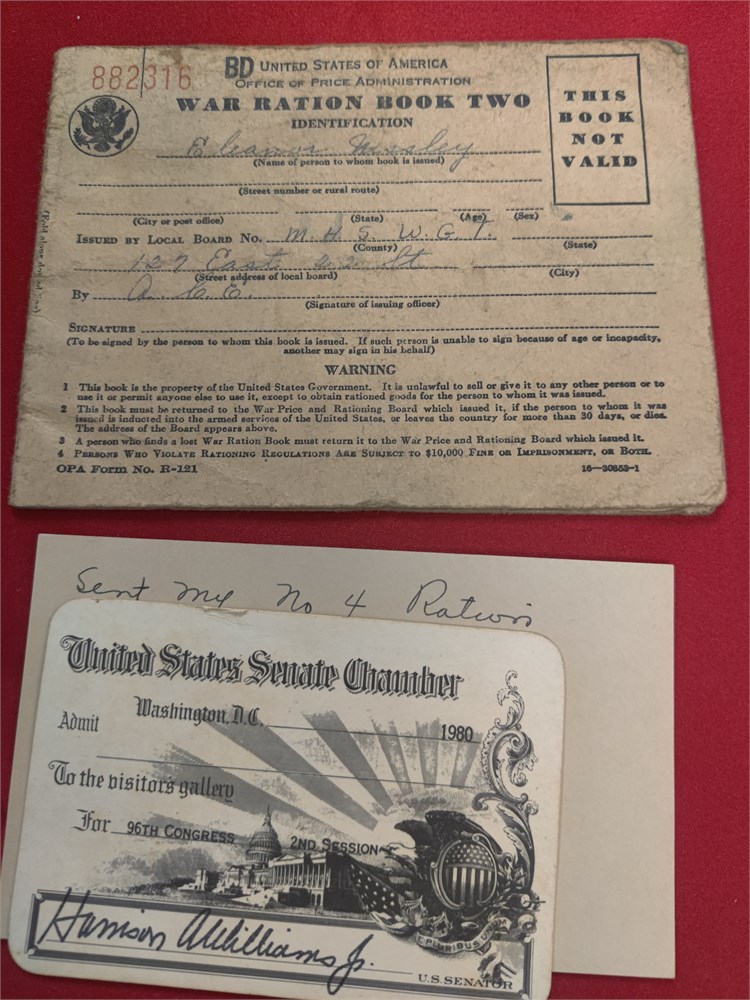 882316 BD UNITED STATES OF AMERICA
OFFICE OF PRICE ADMINISTRATION
WAR RATION BOOK TWO
IDENTIFICATION
THIS
BOOK
NOT
VALID
Eleanor
(Name of person to whom book is issued)
(Street number or rural route)
(City or post office) (State) (Age) (Sex)
ISSUED BY LOCAL BOARD NO. M. H. S. W. G. T.
(County) (State)
127 East St
(Street address of local board) (City)
By
(Signature of issuing officer)
SIGNATURE
(To be signed by the person to whom this book is issued. If such person is unable to sign because of age or incapacity,
another may sign in his behalf)
WARNING
1 This book is the property of the United States Government. It is unlawful to sell or give it to any other person or to
use it or permit anyone else to use it, except to obtain rationed goods for the person to whom it was issued.
2 This book must be returned to the War Price and Rationing Board which issued it, if the person to whom it was
issued is inducted into the armed services of the United States, or leaves the country for more than 30 days, or dies.
The address of the Board appears above.
3 A person who finds a lost War Ration Book must return it to the War Price and Rationing Board which issued it.
4 PERSONS WHO VIOLATE RATIONING REGULATIONS ARE SUBJECT TO $10,000 FINE OR IMPRISONMENT, OR BOTH.
OPA Form No. R-121 16—30853-1
Sent My No 4
United States Senate Chamber
Washington, D.C. 1980
Admit
To the visitor's gallery
For 96TH CONGRESS 2ND SESSION
E PLURIBUS UNUM
Harrison A Williams Jr.
U.S. SENATOR